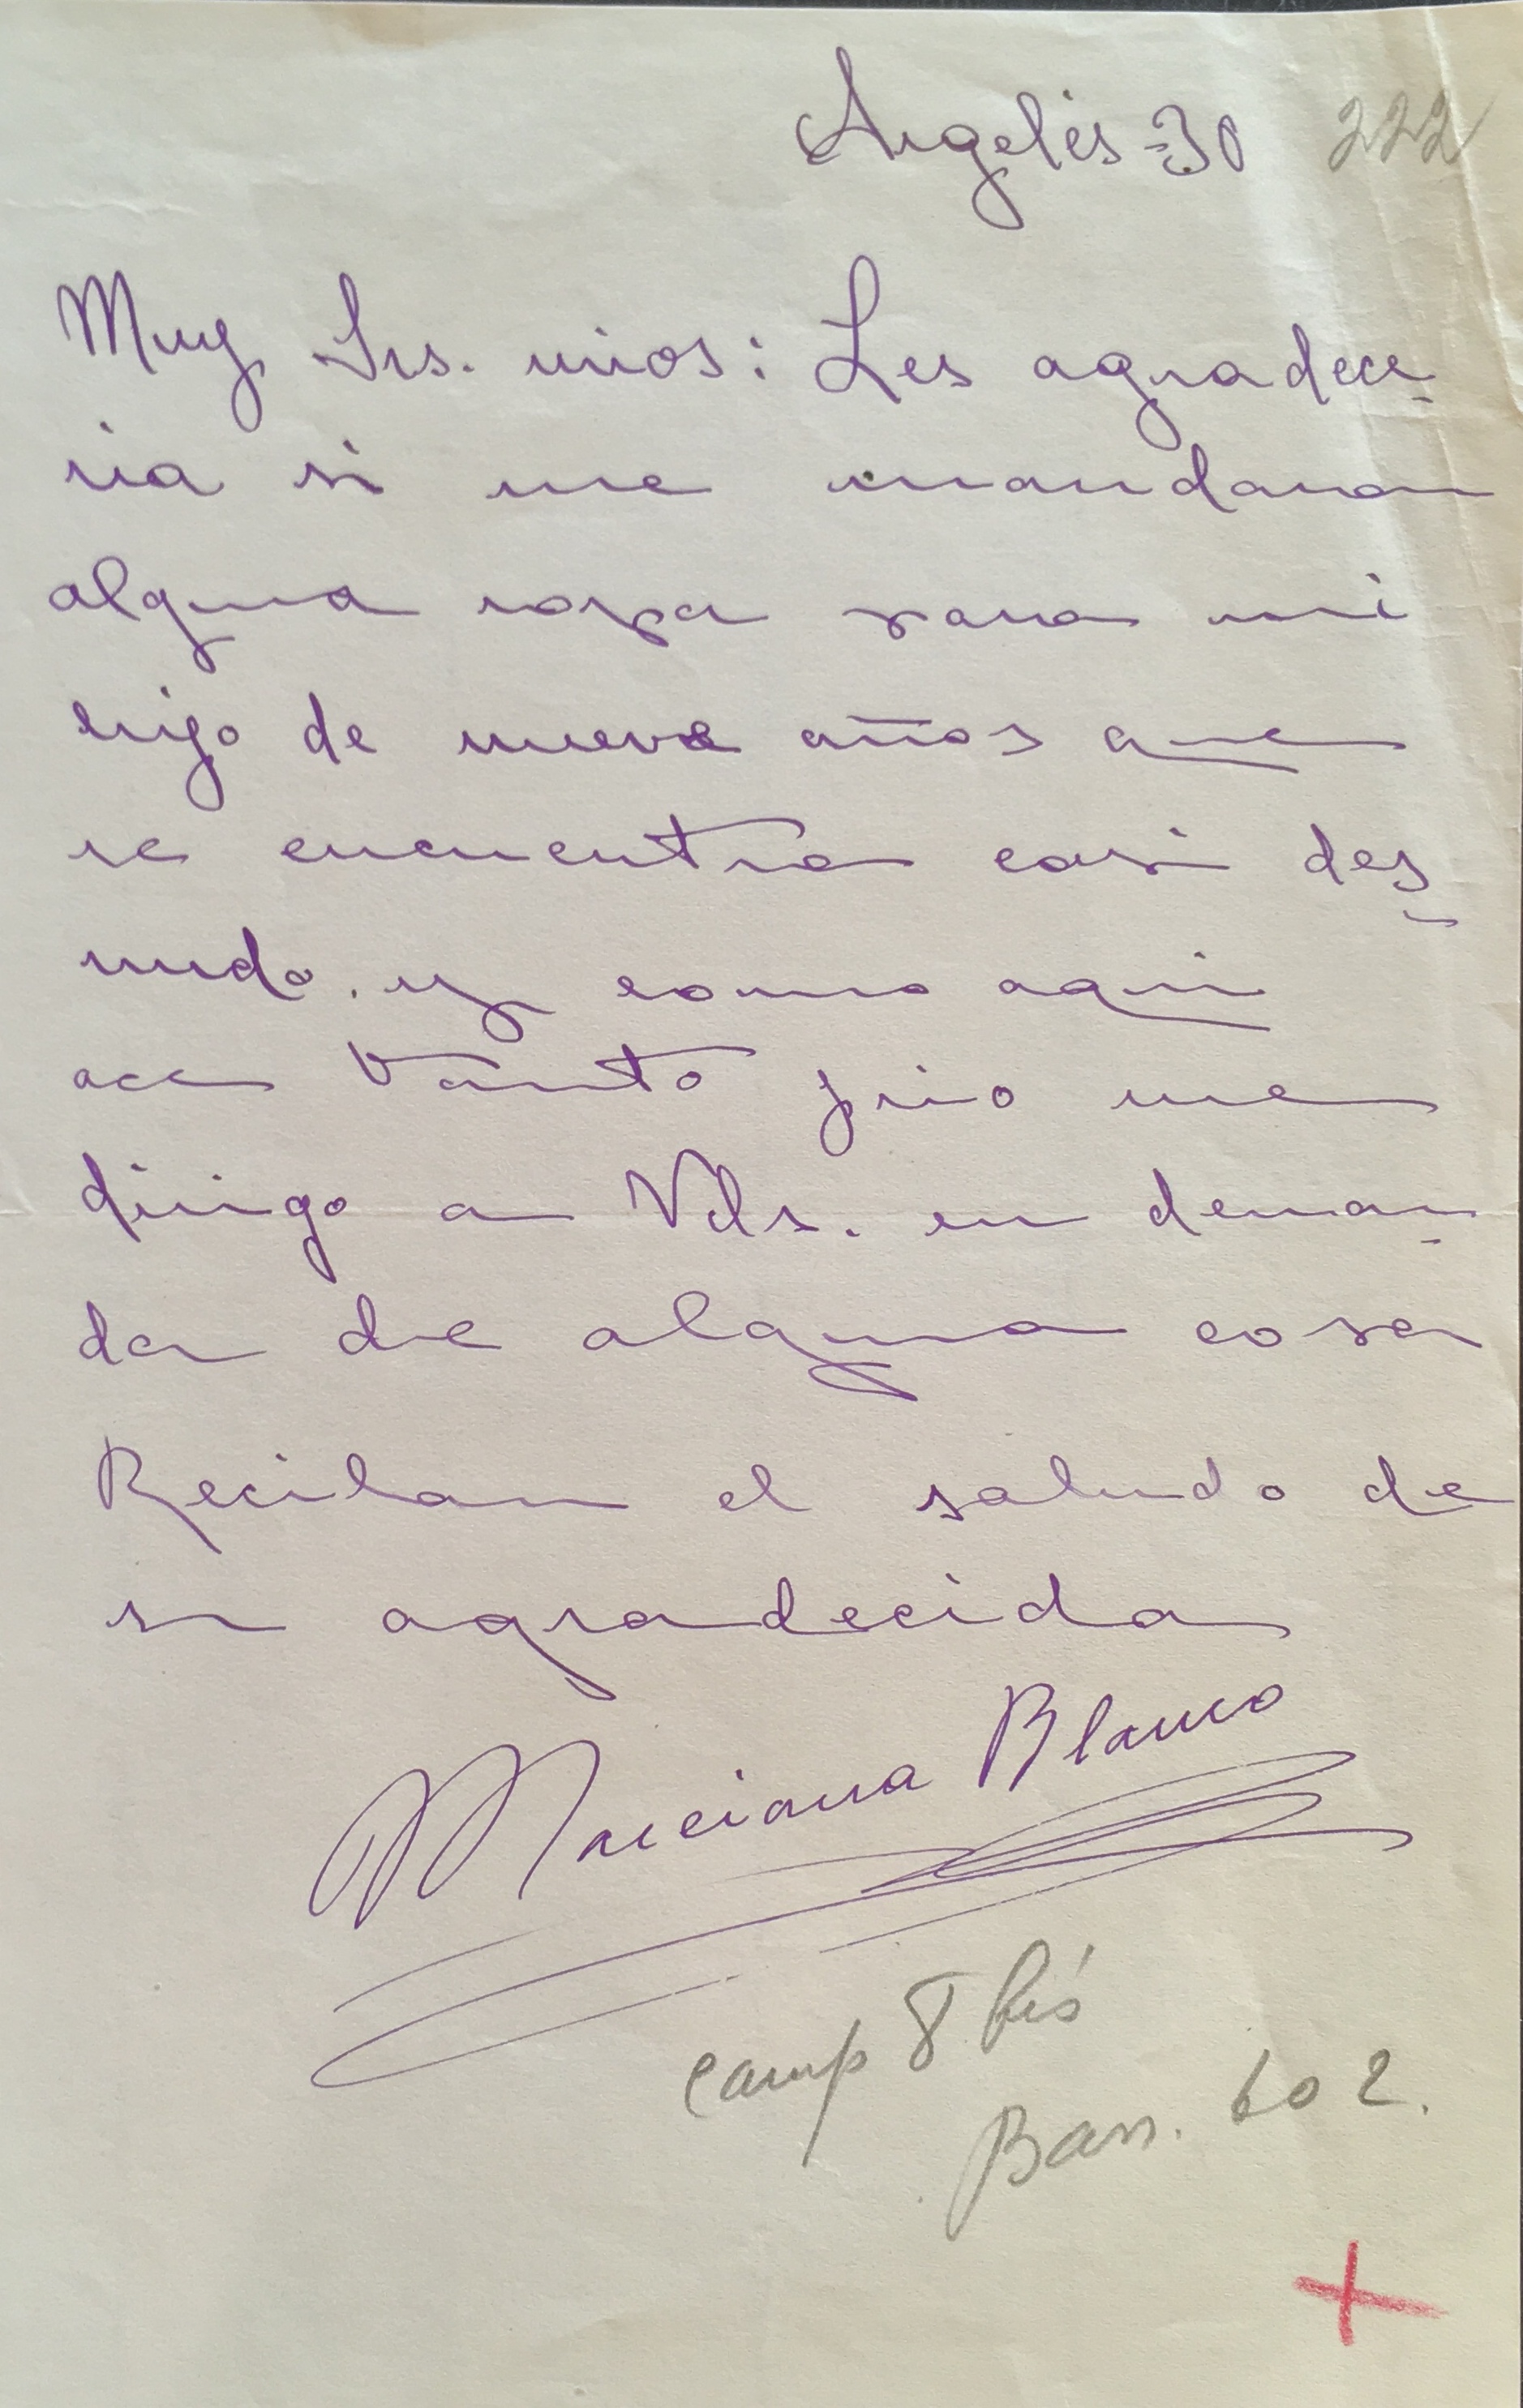 Argelés-30 222
Muy Srs. mios: Les agradece-
ria si me mandaran
alguna ropa para mi
hijo de nueve años que
se encuentra casi des-
nudo. y como aqui
ace tanto frio me
dirigo a Vds. en deman-
da de alguna cosa
Reciban el saludo de
su agradecida
Marciana Blanco
camp 8 bis
Barr. 602.